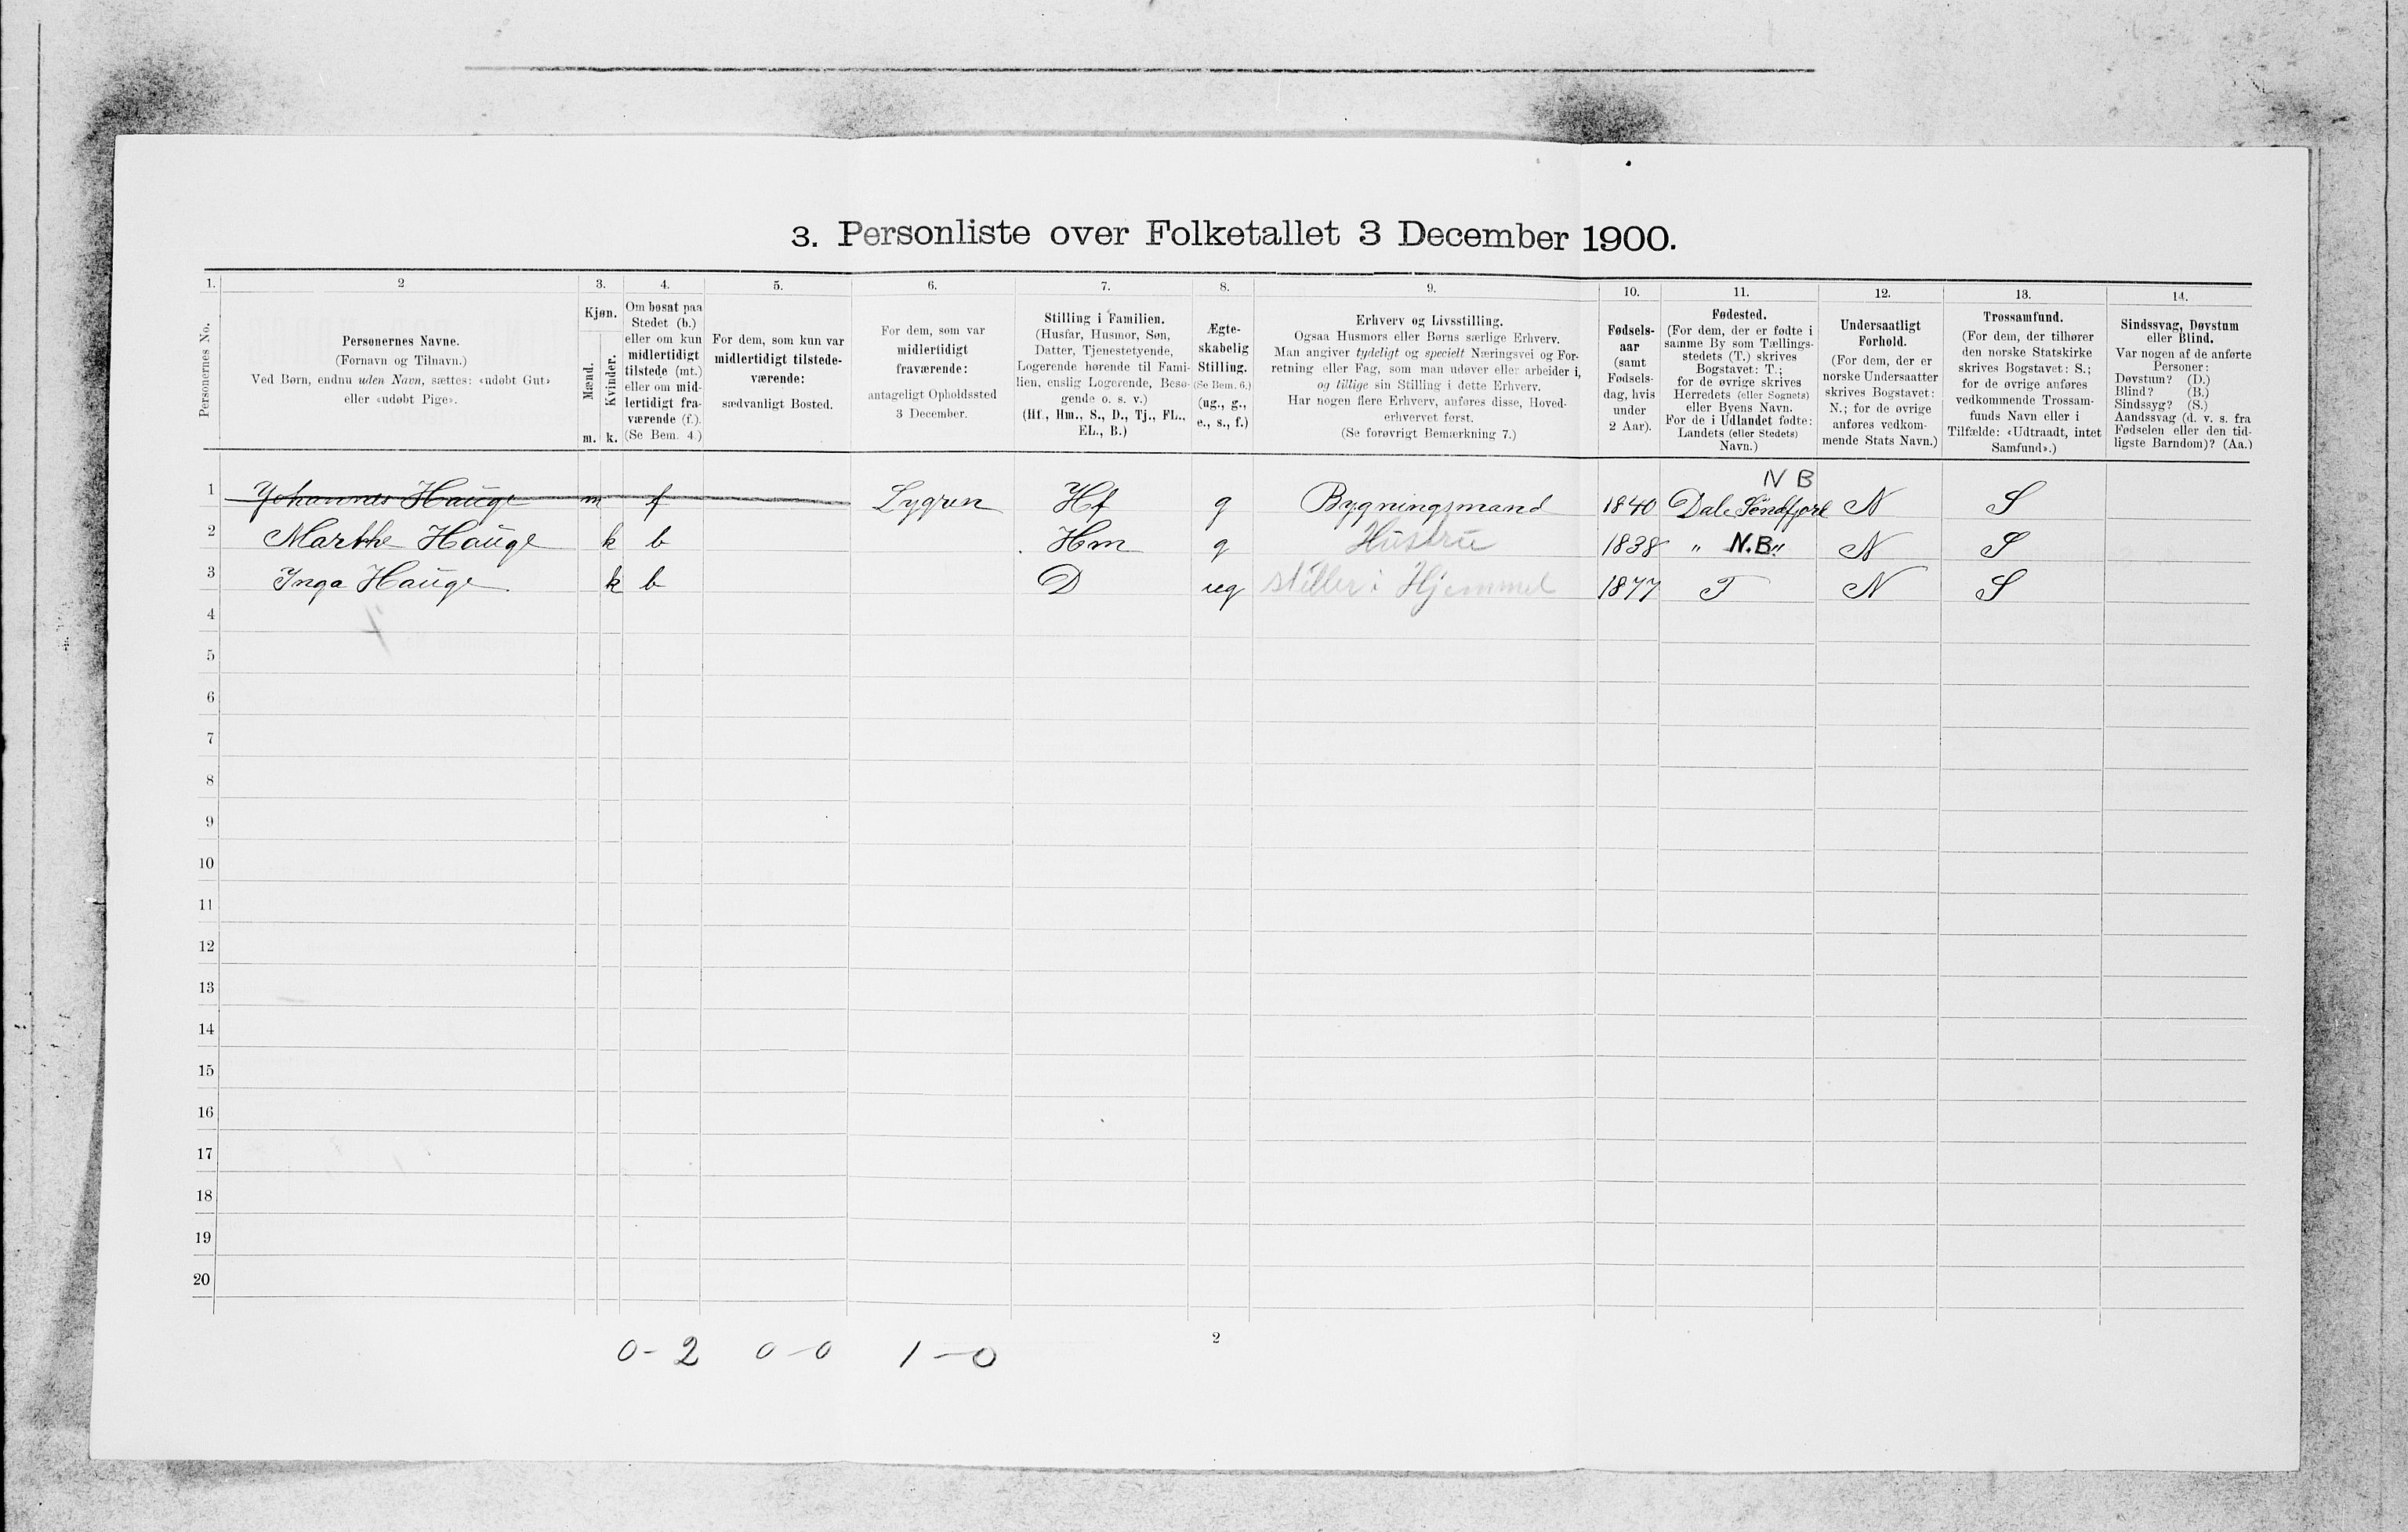 3. Personliste over Folketallet 3 December 1900.
1. 2 3. 4. 5. 6. 7. 8. 9. 10. 11. 12. 13. 14.
Personernes No.
Personernes Navne.
(Fornavn og Tilnavn.)
Ved Børn, endnu uden Navn, sættes: «udøbt Gut»
eller «udøbt Pige».
Kjøn.
Mænd.
Kvinder.
m. k.
Om bosat paa
Stedet (b.)
eller om kun
midlertidigt
tilstede (mt.)
eller om mid-
lertidigt fra-
værende (f.).
(Se Bem. 4.)
For dem, som kun var
midlertidigt tilstede-
værende:
sædvanligt Bosted.
For dem, som var
midlertidigt
fraværende:
antageligt Opholdssted
3 December.
Stilling i Familien.
(Husfar, Husmor, Søn,
Datter, Tjenestetyende,
Logerende hørende til Fami-
lien, enslig Logerende, Besø-
gende o. s. v.)
(Hf., Hm., S., D., Tj., FL.,
EL., B.)
Ægte-
skabelig
Stilling.
(Se Bem. 6.)
(ug., g.,
e., s., f.)
Erhverv og Livsstilling.
Ogsaa Husmors eller Børns særlige Erhverv.
Man angiver tydeligt og specielt Næringsvei og For-
retning eller Fag, som man udøver eller arbeider i,
og tillige sin Stilling i dette Erhverv.
Har nogen flere Erhverv, anføres disse, Hoved-
erhvervet først.
(Se forøvrigt Bemærkning 7.)
Fødsels-
aar
(samt
Fødsels-
dag, hvis
under
2 Aar).
Fødested.
(For dem, der er fødte i
samme By som Tællings-
stedets (T.) skrives
Bogstavet: T.;
for de øvrige skrives
Herredets (eller Sognets)
eller Byens Navn.
For de i Udlandet fødte:
Landets (eller Stedets)
Navn.)
Undersaatligt
Forhold.
(For dem, der er
norske Undersaatter
skrives Bogstavet:
N.; for de øvrige
anføres vedkom-
mende Stats Navn.)
Trossamfund.
(For dem, der tilhører
den norske Statskirke
skrives Bogstavet: S.;
for de øvrige anføres
vedkommende Trossam-
funds Navn eller i
Tilfælde: «Udtraadt, intet
Samfund».)
Sindssvag, Døvstum
eller Blind.
Var nogen af de anførte
Personer:
Døvstum? (D.)
Blind? (B.)
Sindssyg? (S.)
Aandssvag (d. v. s. fra
Fødselen eller den tid-
ligste Barndom)? (Aa.)
N B
1 Johannes Hauge m f Lygren Hf g Bygningsmand 1840 Dale Söndfjord N S
2 Marthe Hauge k b Hm g Hustru 1838 " N.B. " N S
3 Inga Hauge k b D ug steller i Hjemmet 1877 T N S
4
5
6
7
8
9
10
11
12
13
14
15
16
17
18
19
20
2
0-2 0-0 1-0